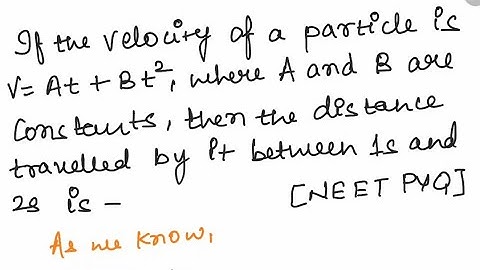 If the velocity of a particle is
V= At + Bt², where A and B are
Constants, then the distance
travelled by it between 1s and
2s is – [NEET PYQ]
As we know,